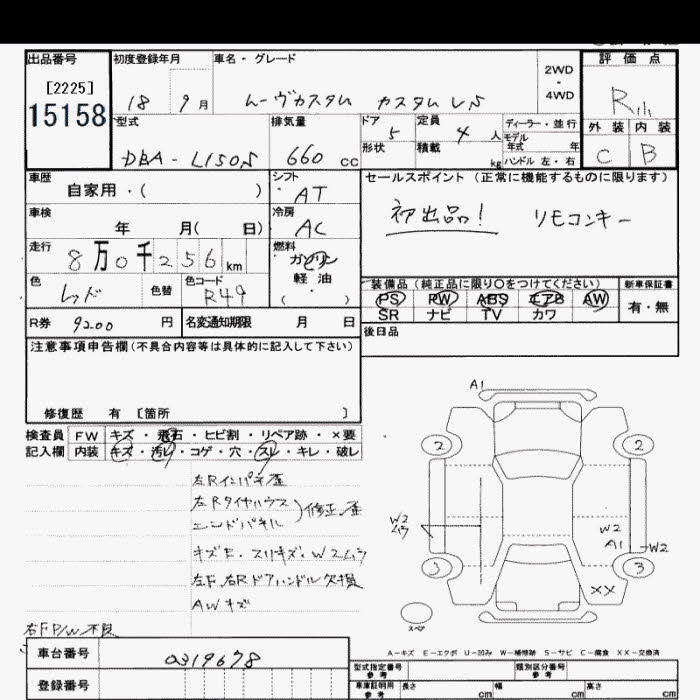 出品番号
[2225]
15158
初度登録年月
18 9月
車名・グレード
ムーヴカスタム カスタムVS
2WD
・
4WD
評価点
R
外装 内装
C B
型式
DBA-L150S
排気量
660 cc
ドア
5
定員
4 人
形状
積載
kg
ディーラー・並行
モデル
年式 年
ハンドル 左・右
車歴
自家用・( )
シフト
AT
セールスポイント(正常に機能するものに限ります)
初出品! リモコンキー
車検
年 月( 日)
冷房
AC
走行
8万0千256km
燃料
ガソリン
軽油
・
( )
色
レッド
色替
色コード
R49
装備品(純正品に限り○をつけてください)
PS PW ABS エアB AW
SR ナビ TV カワ
新車保証書
有・無
R券 9200 円
名変通知期限 月 日
後日品
注意事項申告欄(不具合内容等は具体的に記入して下さい)
修復歴 有 [箇所 ]
検査員 FW キズ・飛石・ヒビ割・リペア跡・×要
記入欄 内装 キズ・汚レ・コゲ・穴・スレ・キレ・破レ
左Rインパネ歪
左Rタイヤハウス
エンドパネル
修正、歪
キズE・スリキズ・W2ムラ
左F、右Rドアハンドル欠損
AWキズ
右FP/W不良
A1
2
2
W2
ムラ
W2
A1
W2
3
3
××
スペア
A-キズ E-エクボ U-凹み W-補修跡 S-サビ C-腐食 XX-交換済
車台番号 0319678
登録番号
型式指定番号
参考
類別区分番号
参考
車庫証明用
参考
長さ cm
幅 cm
高さ cm